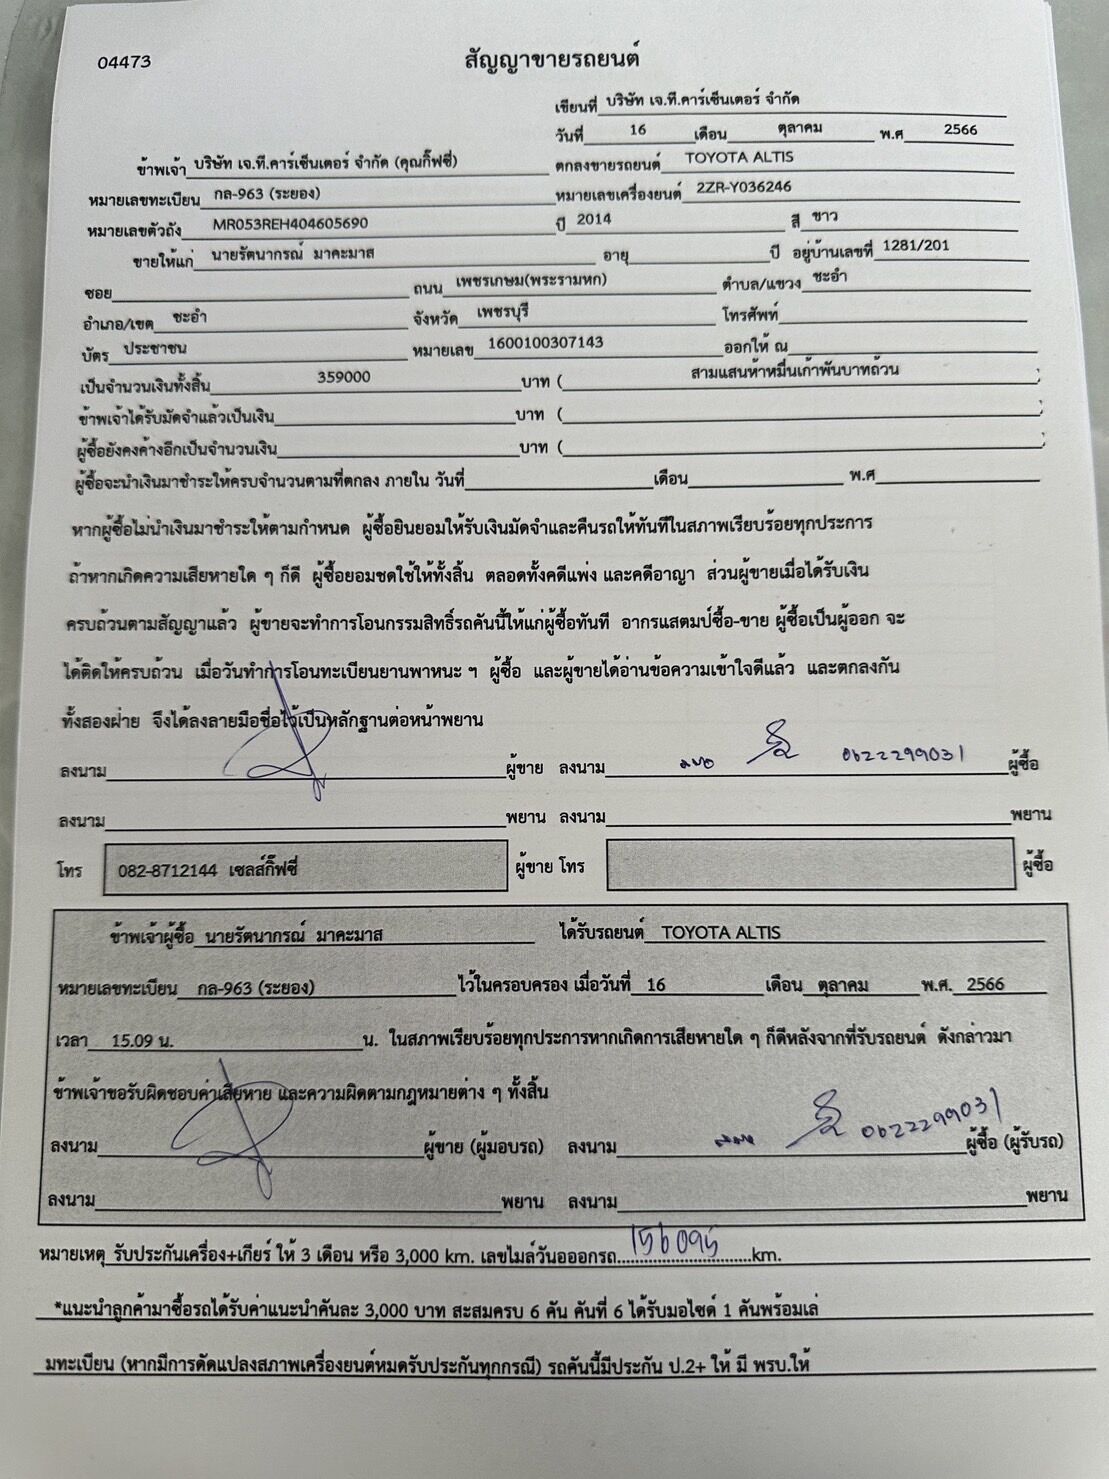 04473
สัญญาขายรถยนต์
เขียนที่ บริษัท เจ.ที.คาร์เซ็นเตอร์ จำกัด
วันที่ 16 เดือน ตุลาคม พ.ศ 2566
ข้าพเจ้า บริษัท เจ.ที.คาร์เซ็นเตอร์ จำกัด (คุณกิ๊ฟซี่) ตกลงขายรถยนต์ TOYOTA ALTIS
หมายเลขทะเบียน กล-963 (ระยอง) หมายเลขเครื่องยนต์ 2ZR-Y036246
หมายเลขตัวถัง MR053REH404605690 ปี 2014 สี ขาว
ขายให้แก่ นายรัตนากรณ์ มาคะมาส อายุ ปี อยู่บ้านเลขที่ 1281/201
ซอย ถนน เพชรเกษม(พระรามหก) ตำบล/แขวง ชะอำ
อำเภอ/เขต ชะอำ จังหวัด เพชรบุรี โทรศัพท์
บัตร ประชาชน หมายเลข 1600100307143 ออกให้ ณ
เป็นจำนวนเงินทั้งสิ้น 359000 บาท ( สามแสนห้าหมื่นเก้าพันบาทถ้วน )
ข้าพเจ้าได้รับมัดจำแล้วเป็นเงิน บาท ( )
ผู้ซื้อยังคงค้างอีกเป็นจำนวนเงิน บาท ( )
ผู้ซื้อจะนำเงินมาชำระให้ครบจำนวนตามที่ตกลง ภายใน วันที่ เดือน พ.ศ
หากผู้ซื้อไม่นำเงินมาชำระให้ตามกำหนด ผู้ซื้อยินยอมให้รับเงินมัดจำและคืนรถให้ทันทีในสภาพเรียบร้อยทุกประการ
ถ้าหากเกิดความเสียหายใด ๆ ก็ดี ผู้ซื้อยอมชดใช้ให้ทั้งสิ้น ตลอดทั้งคดีแพ่ง และคดีอาญา ส่วนผู้ขายเมื่อได้รับเงิน
ครบถ้วนตามสัญญาแล้ว ผู้ขายจะทำการโอนกรรมสิทธิ์รถคันนี้ให้แก่ผู้ซื้อทันที อากรแสตมป์ซื้อ-ขาย ผู้ซื้อเป็นผู้ออก จะ
ได้ติดให้ครบถ้วน เมื่อวันทำการโอนทะเบียนยานพาหนะ ฯ ผู้ซื้อ และผู้ขายได้อ่านข้อความเข้าใจดีแล้ว และตกลงกัน
ทั้งสองฝ่าย จึงได้ลงลายมือชื่อไว้เป็นหลักฐานต่อหน้าพยาน
ลงนาม ผู้ขาย ลงนาม 0622299031 ผู้ซื้อ
ลงนาม พยาน ลงนาม พยาน
โทร 082-8712144 เซลส์กิ๊ฟซี่ ผู้ขาย โทร ผู้ซื้อ
ข้าพเจ้าผู้ซื้อ นายรัตนากรณ์ มาคะมาส ได้รับรถยนต์ TOYOTA ALTIS
หมายเลขทะเบียน กล-963 (ระยอง) ไว้ในครอบครอง เมื่อวันที่ 16 เดือน ตุลาคม พ.ศ. 2566
เวลา 15.09 น. น. ในสภาพเรียบร้อยทุกประการหากเกิดการเสียหายใด ๆ ก็ดีหลังจากที่รับรถยนต์ ดังกล่าวมา
ข้าพเจ้าขอรับผิดชอบค่าเสียหาย และความผิดตามกฎหมายต่าง ๆ ทั้งสิ้น
ลงนาม ผู้ขาย (ผู้มอบรถ) ลงนาม 0622299031 ผู้ซื้อ (ผู้รับรถ)
ลงนาม พยาน ลงนาม พยาน
หมายเหตุ รับประกันเครื่อง+เกียร์ ให้ 3 เดือน หรือ 3,000 km. เลขไมล์วันอออกรถ 156095 km.
*แนะนำลูกค้ามาซื้อรถได้รับค่าแนะนำคันละ 3,000 บาท สะสมครบ 6 คัน คันที่ 6 ได้รับมอไซด์ 1 คันพร้อมเล่
มทะเบียน (หากมีการดัดแปลงสภาพเครื่องยนต์หมดรับประกันทุกกรณี) รถคันนี้มีประกัน ป.2+ ให้ มี พรบ.ให้